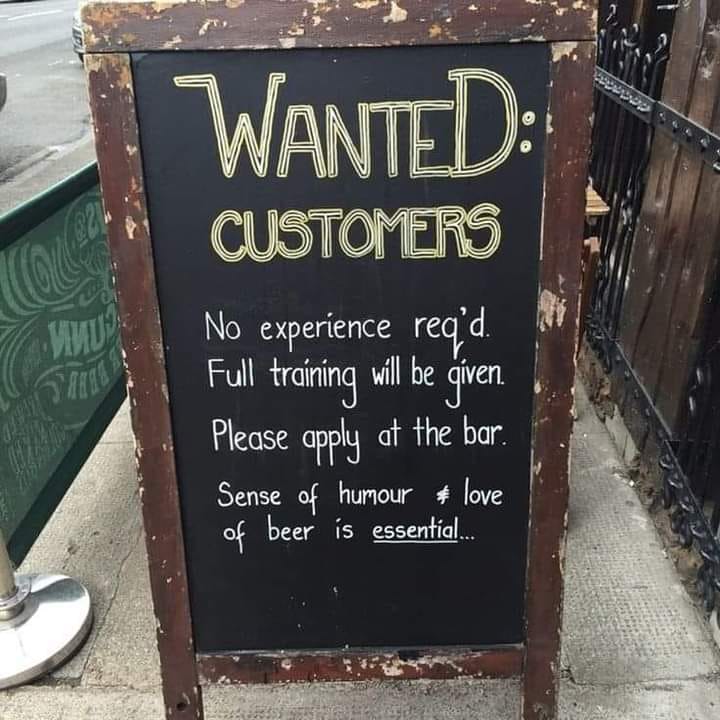 WANTED:
CUSTOMERS
No experience req'd.
Full training will be given.
Please apply at the bar.
Sense of humour & love
of beer is essential...